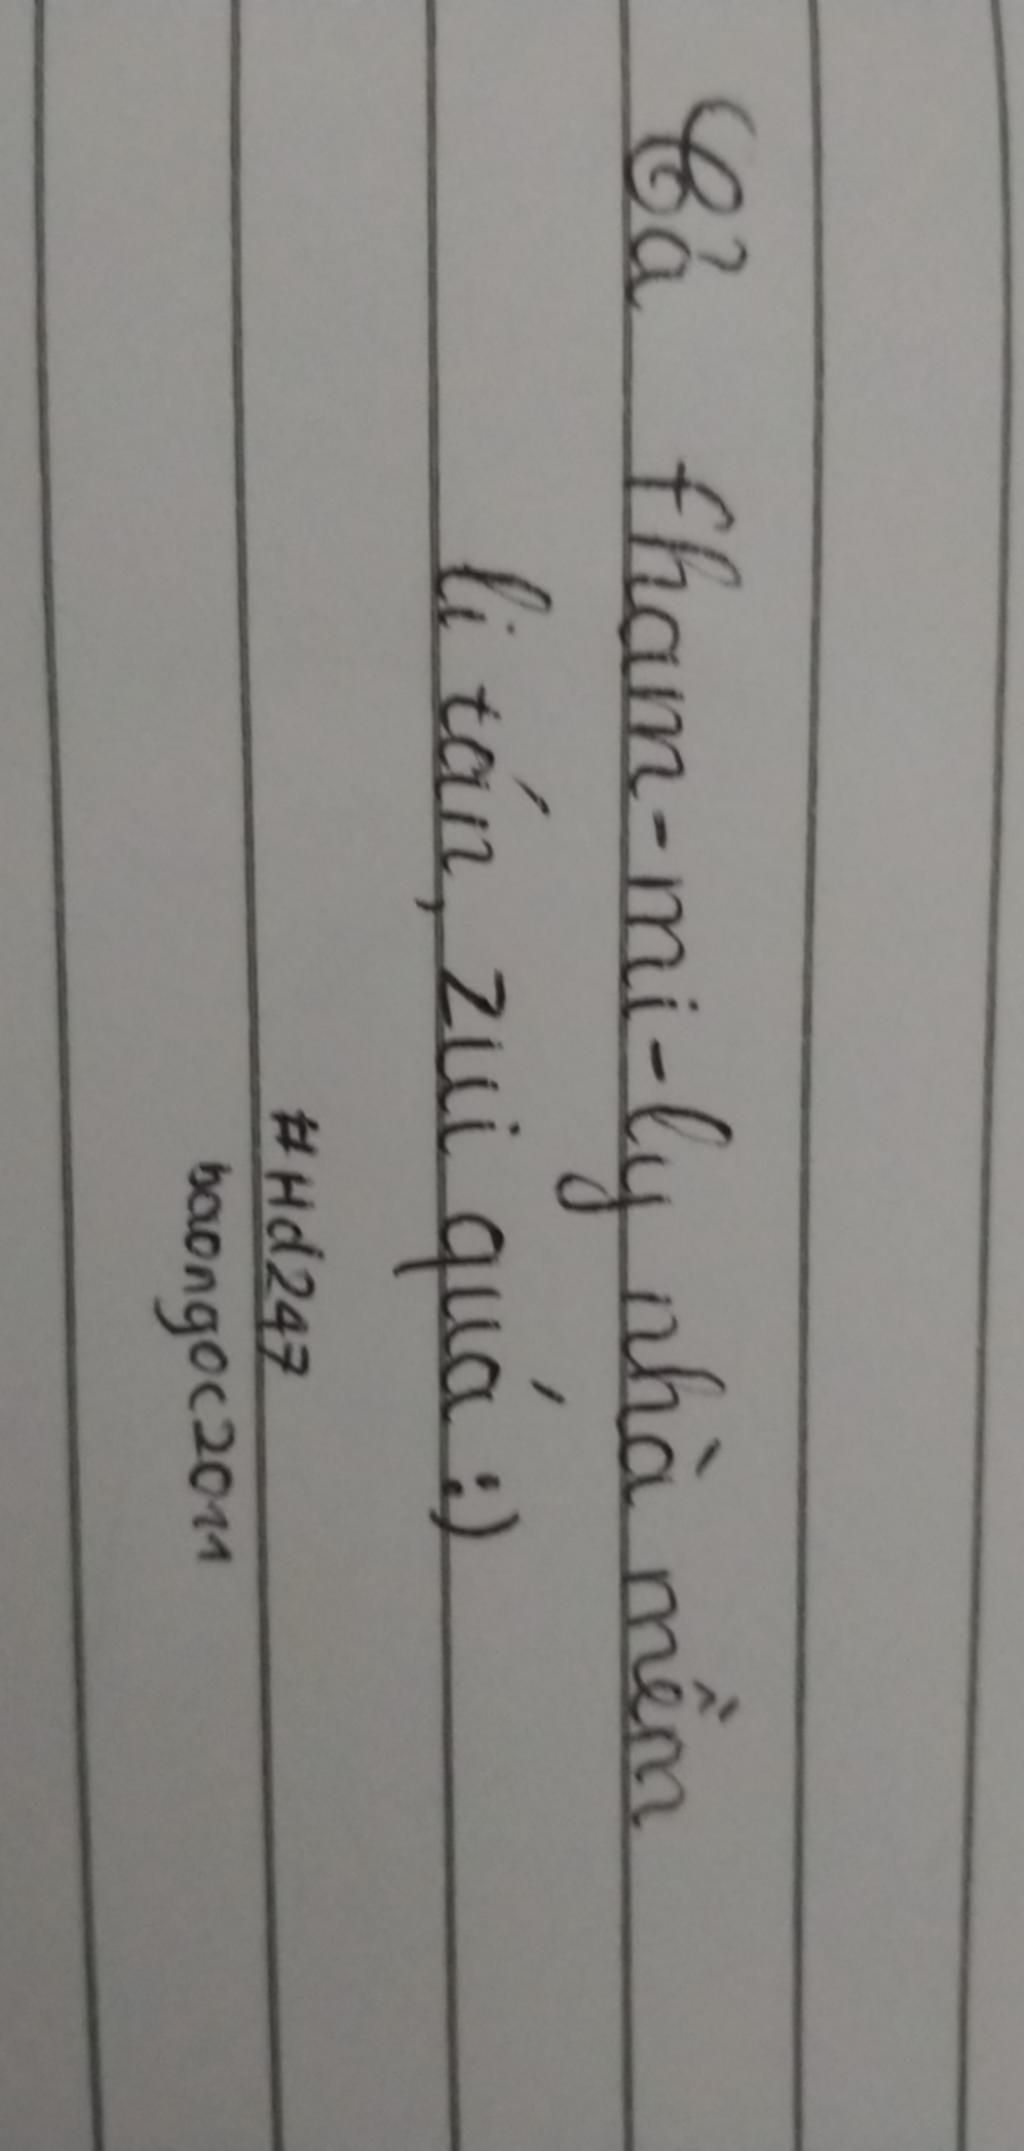 Cả fham-mi-ly nhà mềm
li tán, zui quá :)
#Hd247
baongoc2011